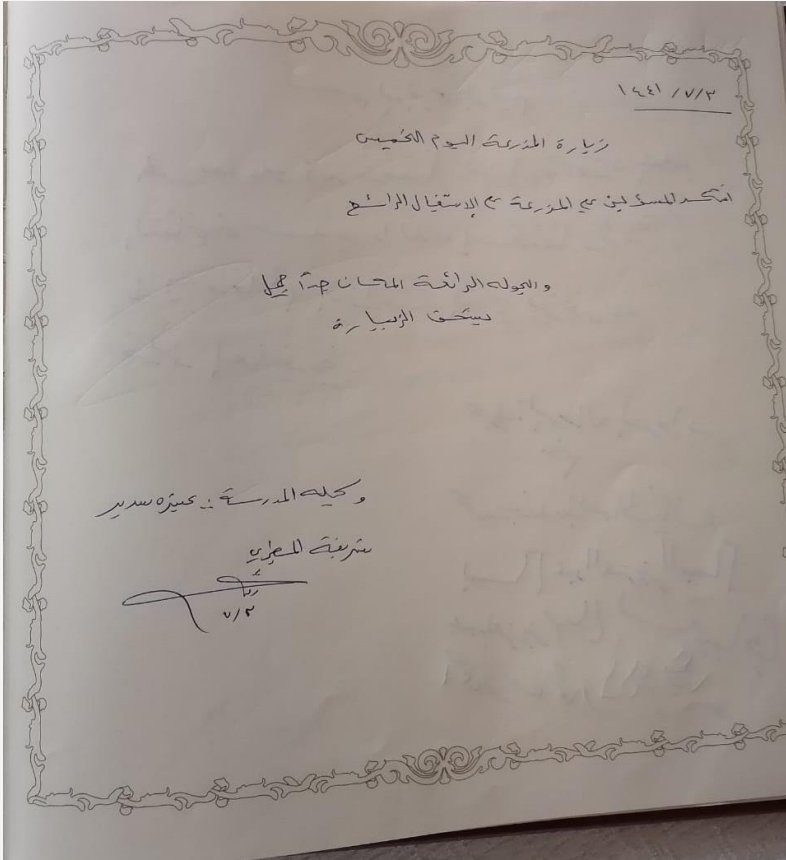 ١٤٤١/٧/٣
زيارة المزرعة اليوم الخميس
اشكر المسؤلين عن المزرعة عن الإستقبال الرائع
والجوله الرائعة المكان جداً جميل
يستحق الزيارة
وكيله المدرسة :
شريفة المطيري
٧/٣